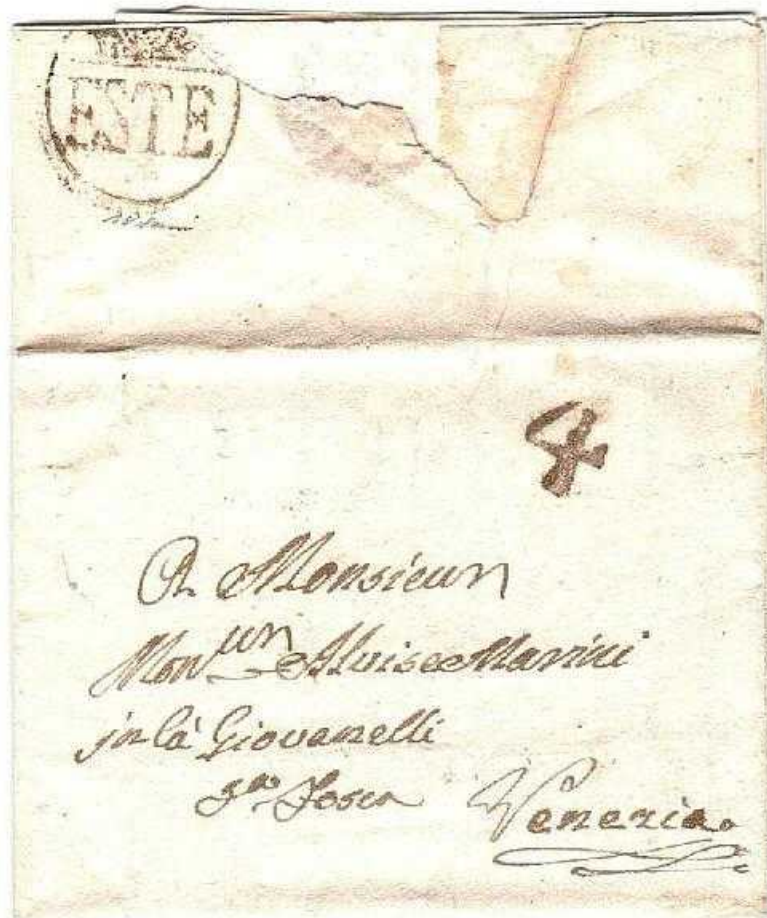 ESTE
4
A Monsieur
Mon.ieur Aluise Marini
in Cà Giovanelli
S.ta Fosca Venezia